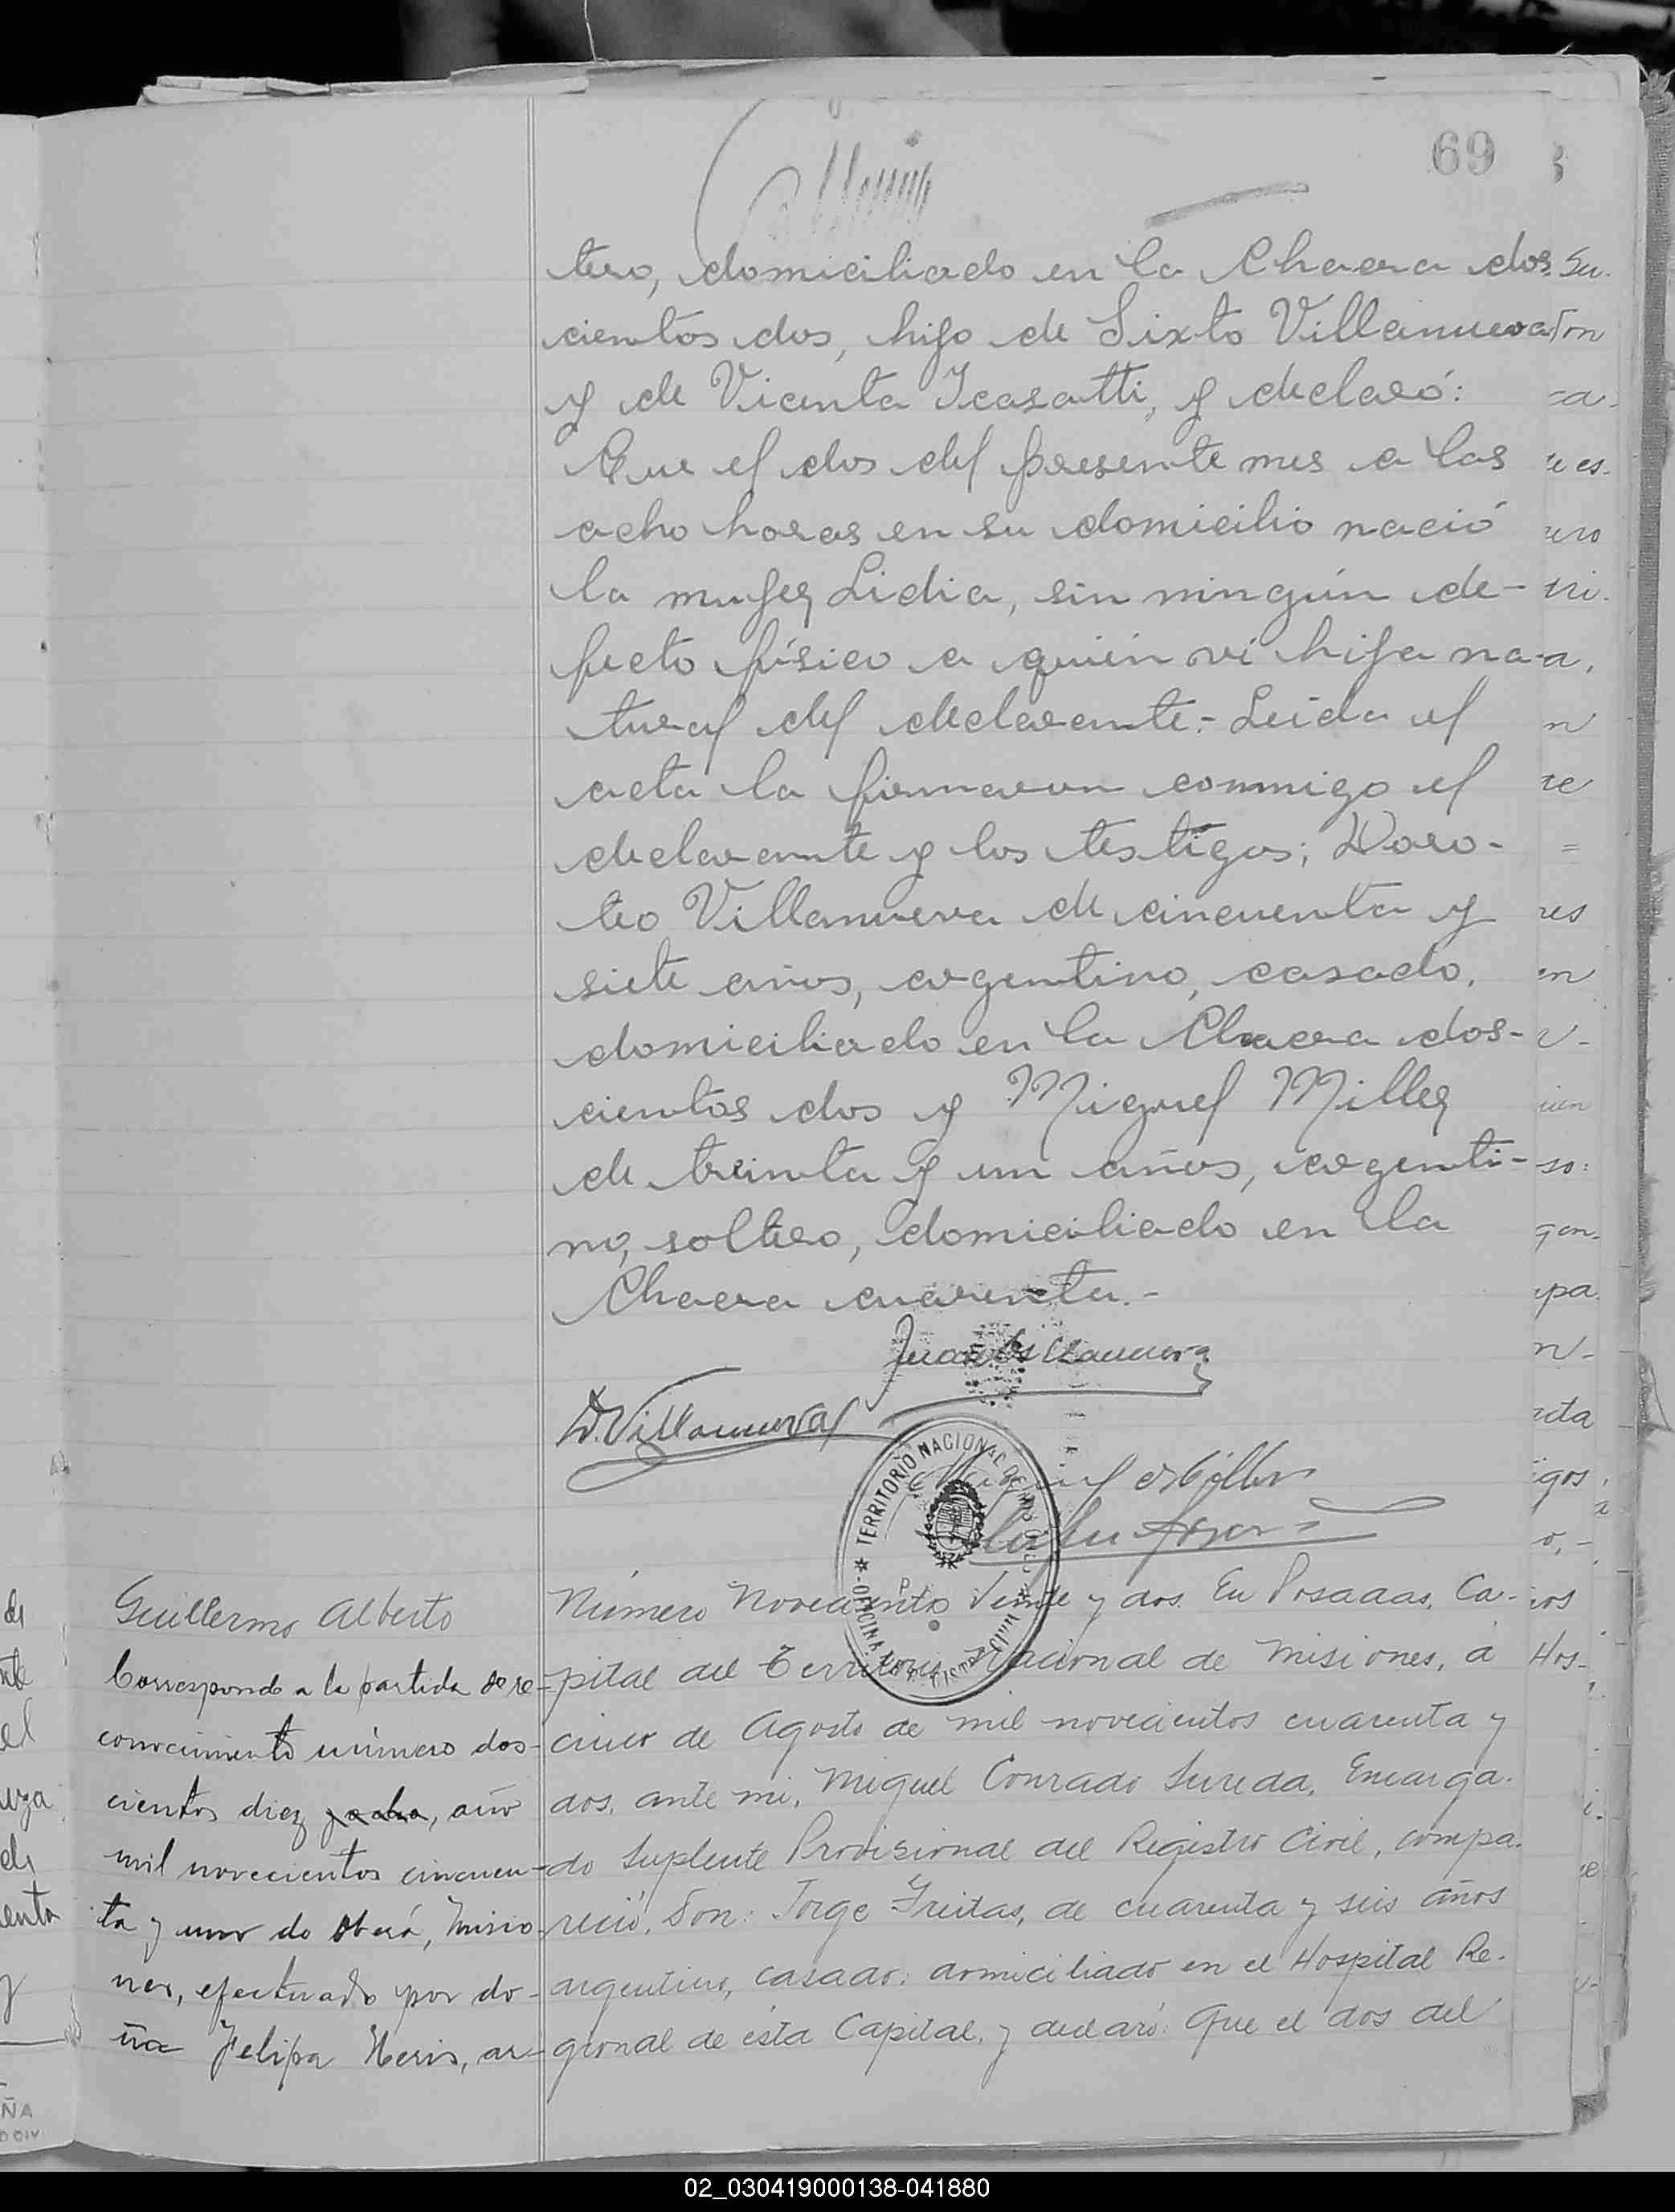 69
tero, domiciliado en la Chacra dos-
cientos dos, hijo de Sixto Villanueva
y de Vicenta Icasatti, y declaró:
Que el dos del presente mes a las
ocho horas en su domicilio nació
la mujer Lidia, sin ningún de-
fecto físico a quién ví hija na-
tural del declarante.- Leida el
acta la firmaron conmigo el
declarante y los testigos; Doro-
teo Villanueva de cincuenta y
siete años, argentino, casado,
domiciliado en la Chacra dos-
cientos dos y Miguel Miller
de treinta y un años, argenti-
no, soltero, domiciliado en la
Chacra cuarenta.-
Juan Villanueva
D. Villanueva
TERRITORIO NACIONAL DE MISIONES
OFICINA
Guillermo Alberto
Corresponde a la partida de re-
conocimiento número dos-
cientos diez y ocho, año
mil novecientos cincuen-
ta y uno de Oberá, Misio-
nes, efectuado por do-
ña Felipa Neris, ar-
Número Novecientos Veinte y dos. En Posadas, Ca-
pital del Territorio Nacional de Misiones, á
cinco de Agosto de mil novecientos cuarenta y
dos, ante mi, Miguel Conrado Sureda, Encarga-
do Suplente Provisional del Registro Civil, compa-
reció, Don: Jorge Freitas, de cuarenta y seis años
argentino, casado, domiciliado en el Hospital Re-
gional de ésta Capital, y declaró: Que el dos del
02_030419000138-041880